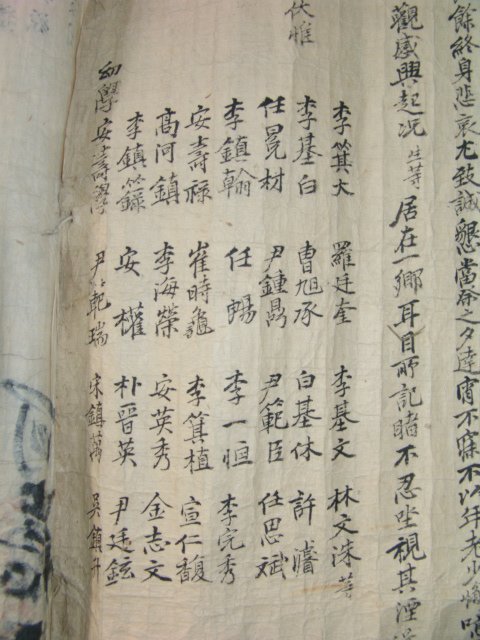 餘終身悲哀尤致誠懇當之夕達宵不寐不以年老少懈
觀感興起況生等居在一鄉耳目所記睹不忍坐視其湮
李箕大 羅廷奎 李基文 林文洙 等
伏惟
李基白 曺旭承 白基休 許
任冕材 尹鍾 尹範臣 任思斌
李鎮翰 任暢 李一恒 李完秀
安壽祿 崔時龜 李箕植 宣仁馥
高河鎮 李海榮 安英秀 金志文
李鎮籙 安權 朴晉英 尹廷鉉
幼學 安壽學 尹範瑞 宋鎮萬 吳鎮升